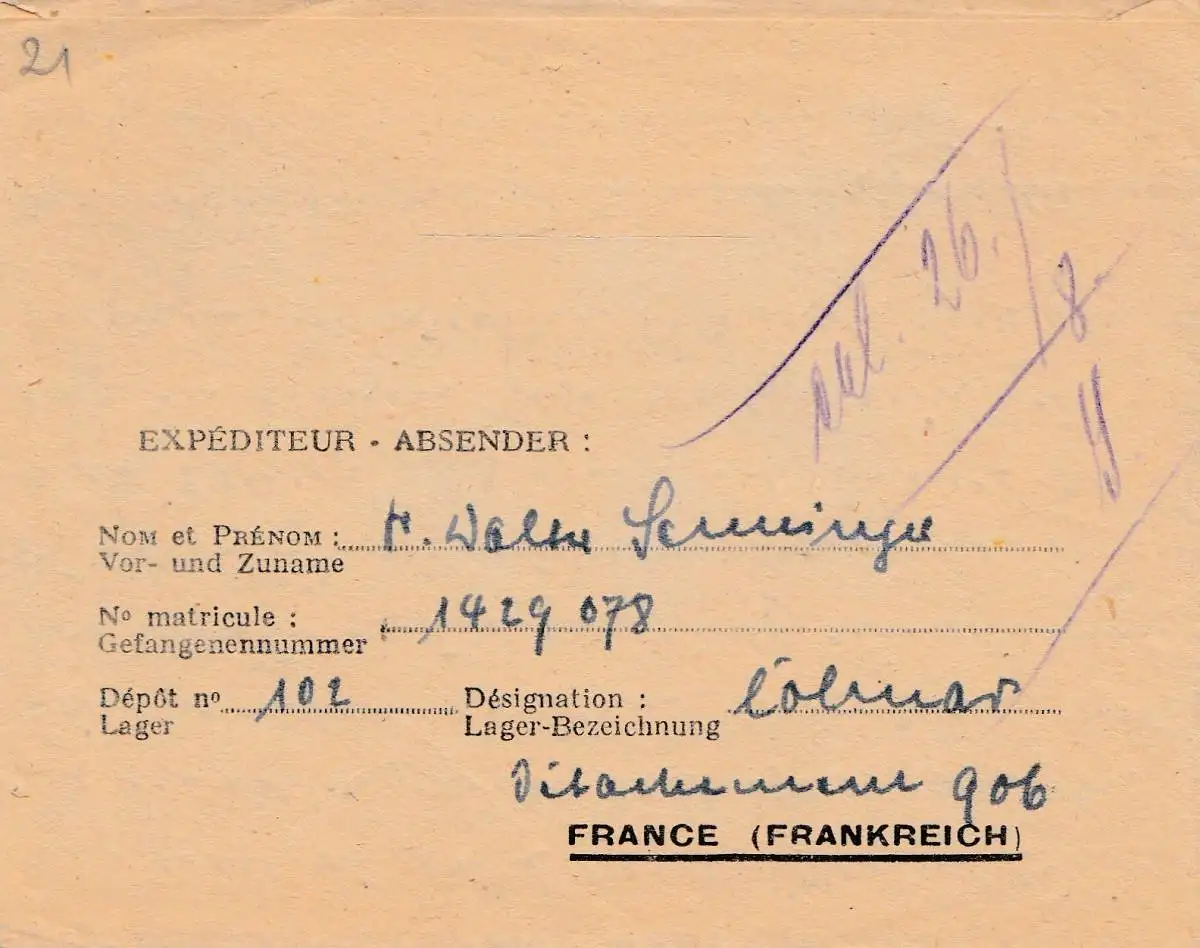 21
erl. 26. / 8.
EXPÉDITEUR - ABSENDER :
NOM et PRÉNOM : Dr. Walter Senninger
Vor- und Zuname
Nº matricule : 1429 078
Gefangenennummer
Dépôt nº 102 Désignation : Colmar
Lager Lager-Bezeichnung
Détachement 906
FRANCE (FRANKREICH)